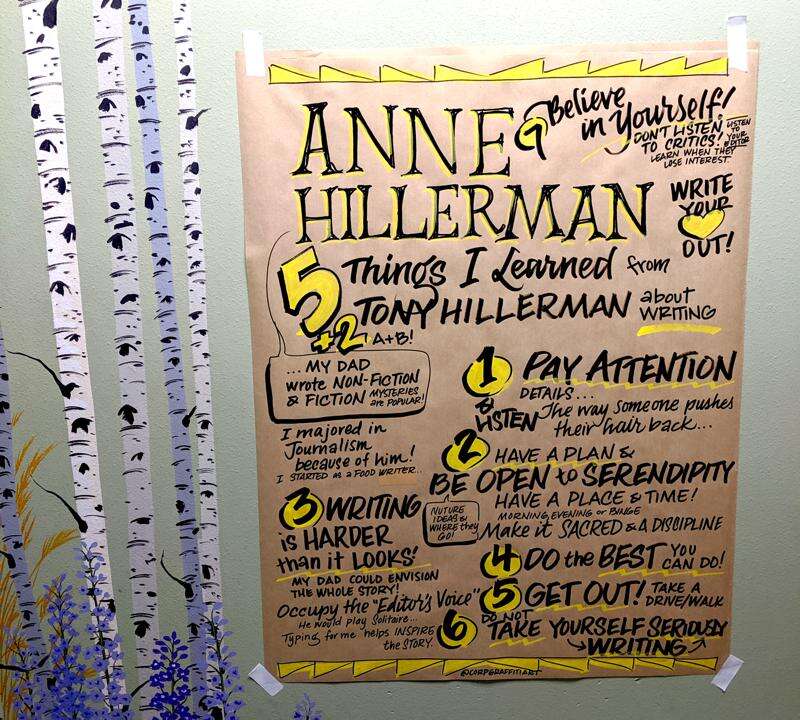 ANNE
HILLERMAN
9 Believe
in Yourself!
DON'T LISTEN
TO CRITICS!
LEARN WHEN THEY
LOSE INTEREST.
LISTEN
TO
YOUR
EDITOR
WRITE
YOUR
OUT!
5 Things I Learned from
TONY HILLERMAN about
WRITING
+2! A+B!
... MY DAD
wrote NON-FICTION
& FICTION MYSTERIES
are POPULAR!
I majored in
Journalism
because of him!
I STARTED as a FOOD WRITER...
1 PAY ATTENTION
DETAILS...
& LISTEN The way someone pushes
their hair back...
2 HAVE A PLAN &
BE OPEN to SERENDIPITY
HAVE A PLACE & TIME!
MORNING, EVENING or BINGE
Make it SACRED & A DISCIPLINE
NUTURE
IDEAS &
WHERE they
GO!
3 WRITING
is HARDER
than it LOOKS!
MY DAD COULD ENVISION
THE WHOLE STORY!
Occupy the "Editor's Voice"
He would play Solitaire...
Typing for me helps INSPIRE
the STORY.
4 DO the BEST YOU
CAN DO!
5 GET OUT! TAKE A
DRIVE/WALK
6 DO NOT
TAKE YOURSELF SERIOUSLY
WRITING
@CORPGRAFFITIART